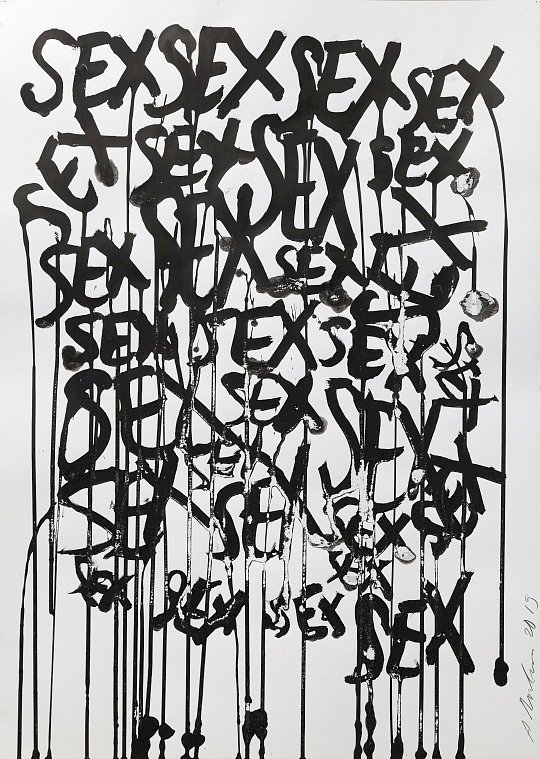 SEX SEX SEX SEX
SEX SEX SEX SEX
SEX SEX SEX X
SEX SEX SEX
SEX SEX SEX SEX
SEX SEX SEX SEX
SEX SEX SEX
SEX SEX SEX SEX
SEX
2019